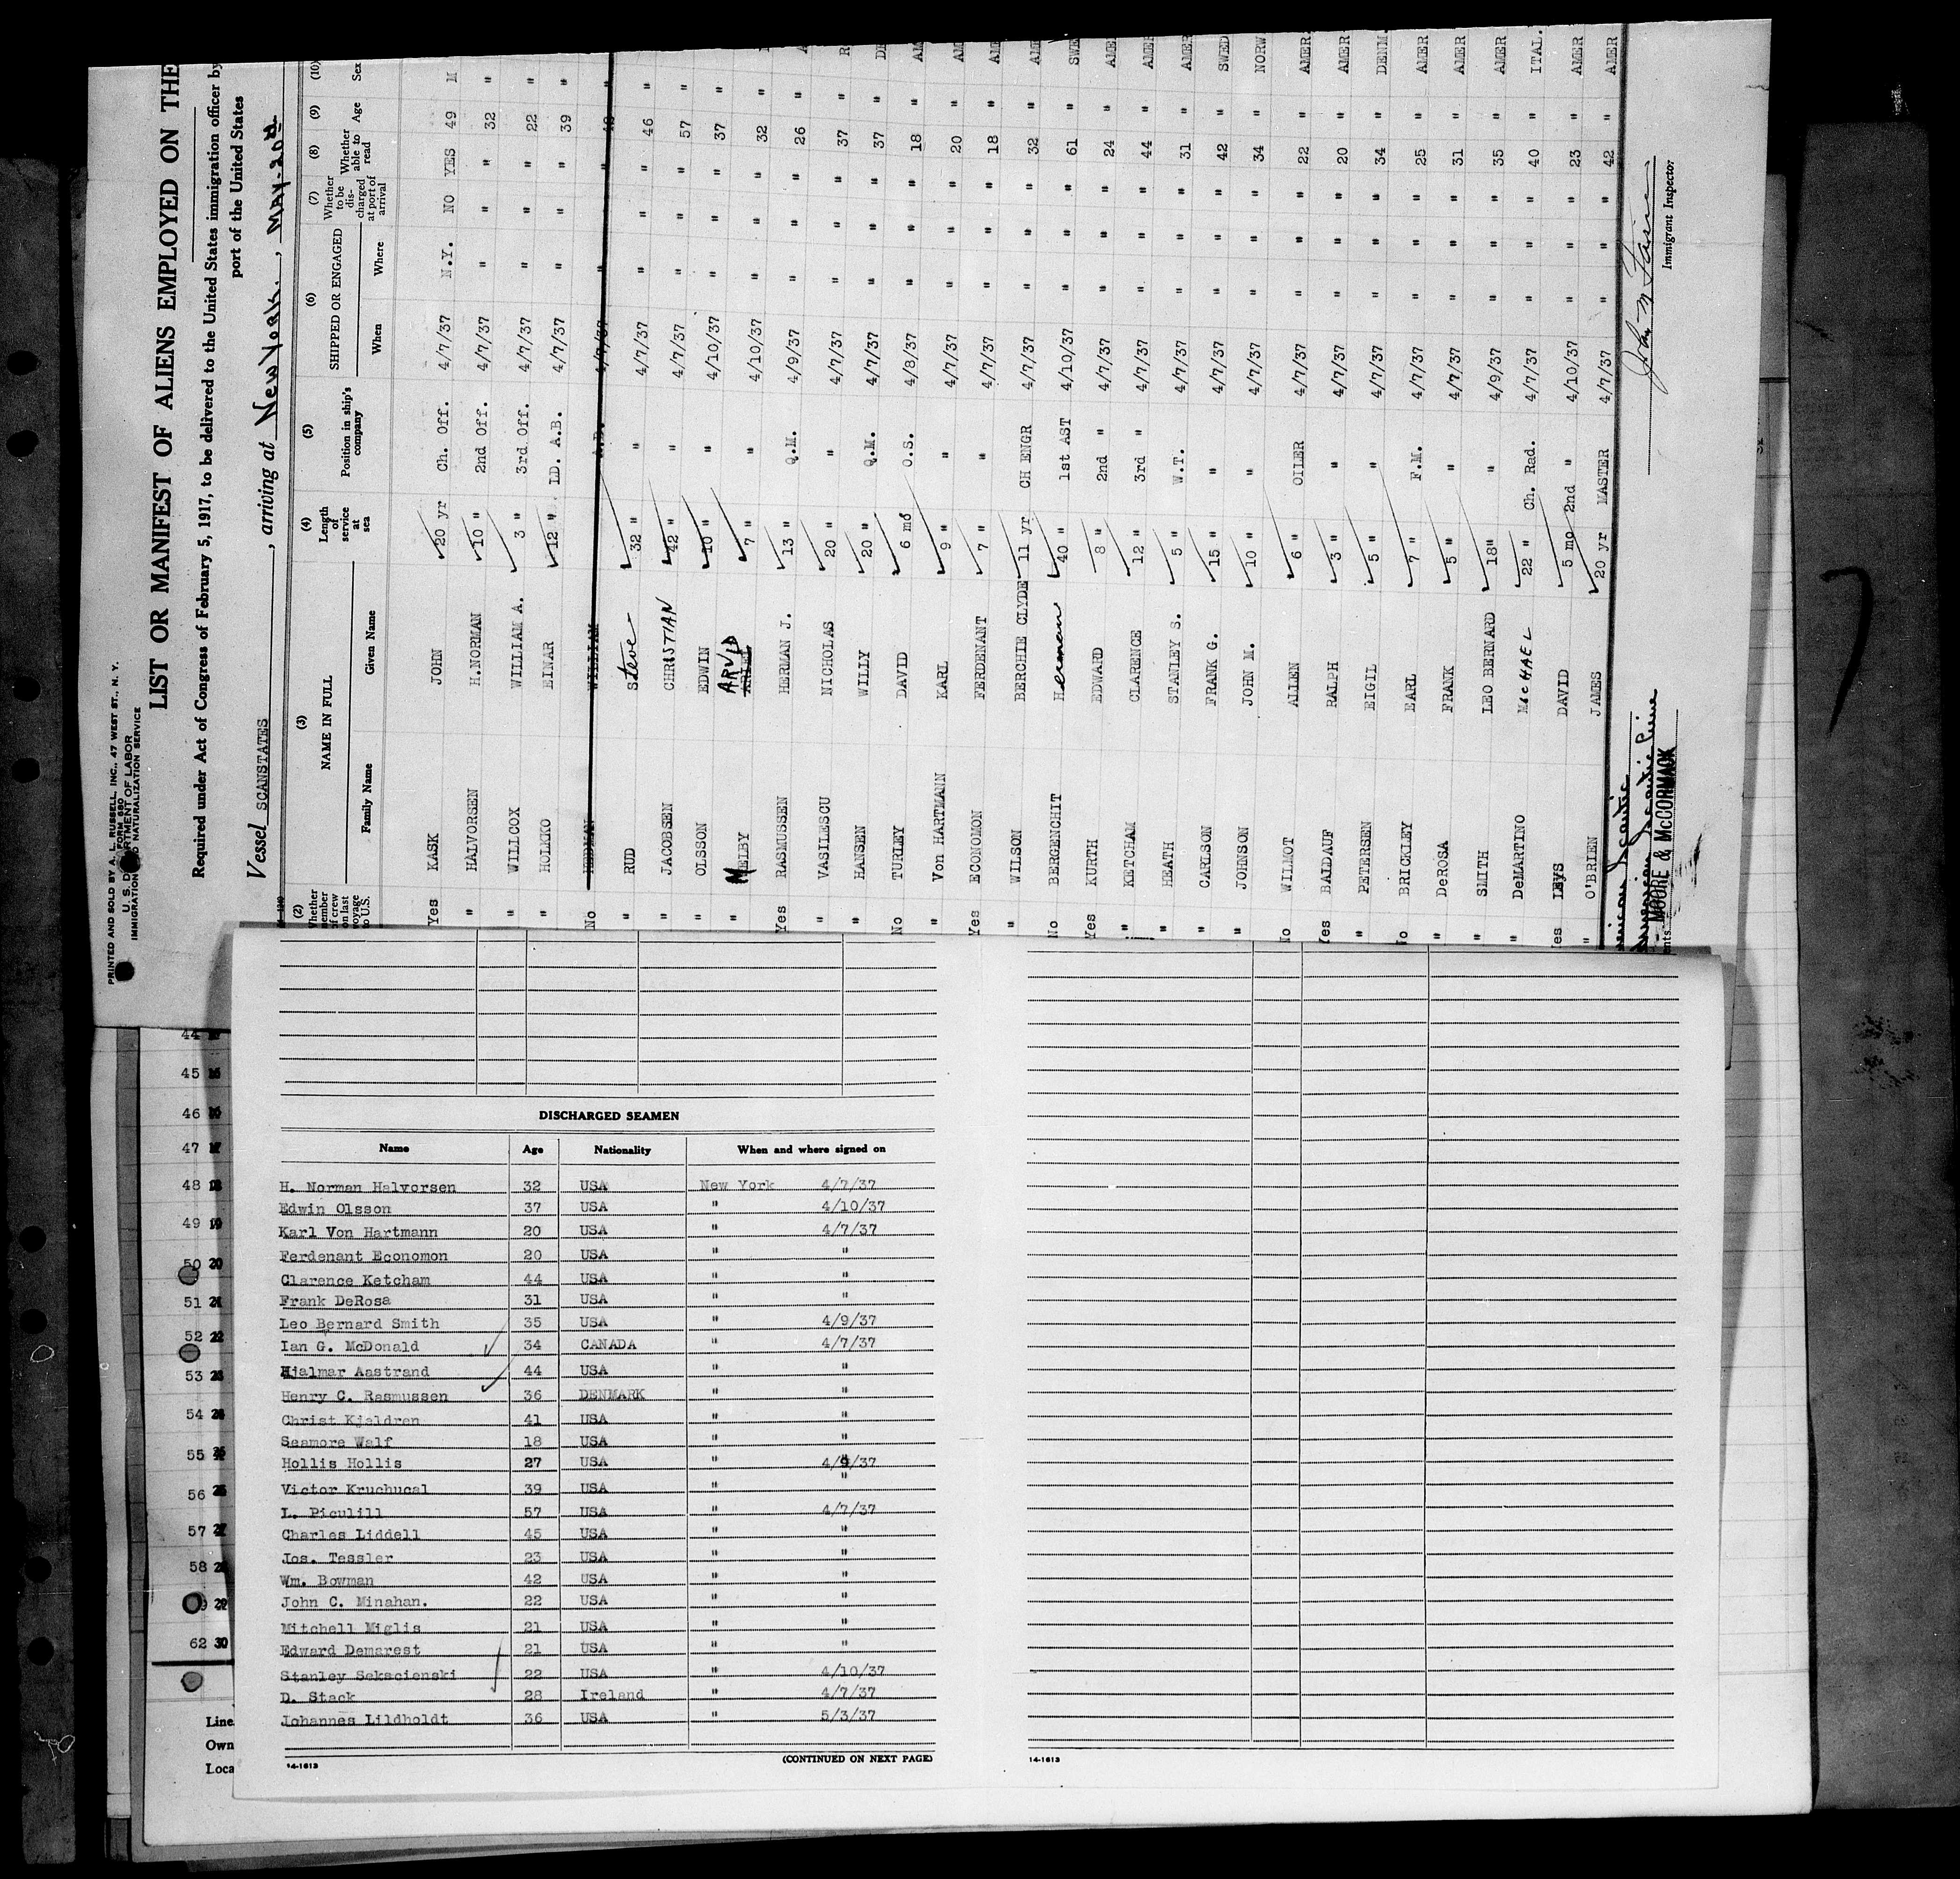 PRINTED AND SOLD BY A. L. RUSSELL, INC., 47 WEST ST., N. Y.
FORM 680
U. S. DEPARTMENT OF LABOR
IMMIGRATION AND NATURALIZATION SERVICE
LIST OR MANIFEST OF ALIENS EMPLOYED ON THE
Required under Act of Congress of February 5, 1917, to be delivered to the United States immigration officer by
port of the United States
Vessel SCANSTATES, arriving at New York, MAY-20th
(2) Whether member of crew on last voyage to U.S. (3) NAME IN FULL Family Name Given Name (4) Length of service at sea (5) Position in ship's company (6) SHIPPED OR ENGAGED When Where (7) Whether to be discharged at port of arrival (8) Whether able to read (9) Age (10) Sex
Yes KASK JOHN 20 yr Ch. Off. 4/7/37 N.Y. NO YES 49 M
" HALVORSEN H.NORMAN 10 " 2nd Off. 4/7/37 " " " 32 "
" WILLCOX WILLIAM A. 3 " 3rd Off. 4/7/37 " " " 22 "
" HOLKO EINAR 12 " LD. A.B. 4/7/37 " " " 39 "
No HEDMAN WILLIAM A.B. 4/7/37 " "
" RUD Steve 32 " " 4/7/37 " " " 46 "
" JACOBSEN CHRISTIAN 42 " " 4/7/37 " " " 57 "
" OLSSON EDWIN 10 " " 4/10/37 " " " 37 "
" MELBY ARVID 7 " " 4/10/37 " " " 32 "
Yes RASMUSSEN HERMAN J. 13 " Q.M. 4/9/37 " " " 26 " A
" VASILESCU NICHOLAS 20 " " 4/7/37 " " " 37 " R
" HANSEN WILLY 20 " Q.M. 4/7/37 " " " 37 " DE
No TURLEY DAVID 6 mo O.S. 4/8/37 " " " 18 " AM
" Von HARTMANN KARL 9 " " 4/7/37 " " " 20 " AM
Yes ECONOMON FERDENANT 7 " " 4/7/37 " " " 18 " AM
" WILSON BERCHIE CLYDE 11 yr CH ENGR 4/7/37 " " " 32 " AM
No BERGENCHIT Herman 40 " 1st AST 4/10/37 " " " 61 " SWE
Yes KURTH EDWARD 8 " 2nd " 4/7/37 " " " 24 " AME
" KETCHAM CLARENCE 12 " 3rd " 4/7/37 " " " 44 " AMER
" HEATH STANLEY S. 5 " W.T. 4/7/37 " " " 31 " AMER
" CARLSON FRANK G. 15 " " 4/7/37 " " " 42 " SWED
" JOHNSON JOHN M. 10 " " 4/7/37 " " " 34 " NORW
No WILMOT ALLEN 6 " OILER 4/7/37 " " " 22 " AMER.
Yes BALDAUF RALPH 3 " " 4/7/37 " " " 20 " AMER
" PETERSEN EIGIL 5 " " 4/7/37 " " " 34 " DENM.
No BRICKLEY EARL 7 " F.M. 4/7/37 " " " 25 " AMER
" DeROSA FRANK 5 " " 4/7/37 " " " 31 " AMER
" SMITH LEO BERNARD 18" " 4/9/37 " " " 35 " AMER
" DeMARTINO MicHAEL 22 " Ch. Rad. 4/7/37 " " " 40 " ITAL.
Yes LEYS DAVID 5 mo 2nd " 4/10/37 " " " 23 " AMER
" O'BRIEN JAMES 20 yr MASTER 4/7/37 " " " 42 " AMER
MOORE & McCORMACK
Immigrant Inspector
44
45
46
47
48
49
50 20
51
52
53
54
55
56
57
58
62 30
Line
Own
Loca
DISCHARGED SEAMEN
Name Age Nationality When and where signed on
H. Norman Halvorsen 32 USA New York 4/7/37
Edwin Olsson 37 USA " 4/10/37
Karl Von Hartmann 20 USA " 4/7/37
Ferdenant Economon 20 USA " "
Clarence Ketcham 44 USA " "
Frank DeRosa 31 USA " "
Leo Bernard Smith 35 USA " 4/9/37
Ian G. McDonald 34 CANADA " 4/7/37
Hjalmar Aastrand 44 USA " "
Henry C. Rasmussen 36 DENMARK " "
Christ Kjeldren 41 USA " "
Seamore Walf 18 USA " "
Hollis Hollis 27 USA " 4/9/37
Victor Kruchucal 39 USA " "
L. Piculill 57 USA " 4/7/37
Charles Liddell 45 USA " "
Jos. Tessler 23 USA " "
Wm. Bowman 42 USA " "
John C. Minahan. 22 USA " "
Mitchell Miglis 21 USA " "
Edward Demarest 21 USA " "
Stanley Sekscienski 22 USA " 4/10/37
D. Stack 28 Ireland " 4/7/37
Johannes Lildholdt 36 USA " 5/3/37
14-1613 (CONTINUED ON NEXT PAGE)
14-1613